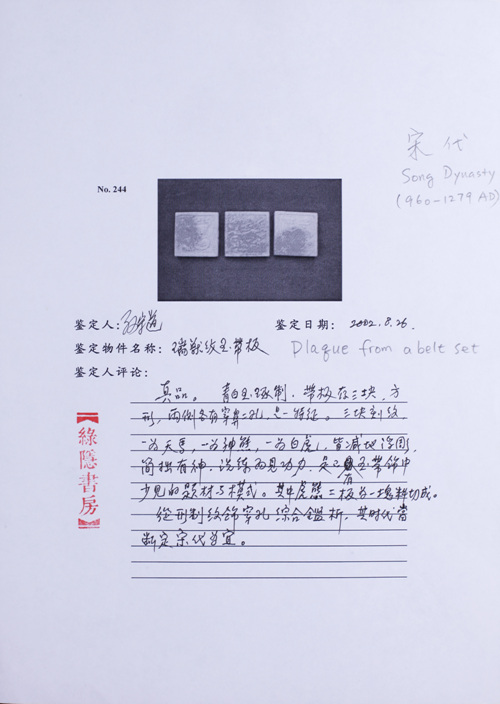 宋代
Song Dynasty
(960-1279 AD)
No. 244
鉴定人:
鉴定日期: 2002.8.26.
鉴定物件名称: 瑞兽纹玉带板 Plaque from a belt set
鉴定人评论:
真品。青白玉琢制,带板存三块,方
形,两侧各有穿鼻二孔,是一特征。三块刻纹
一为天马,一为神熊,一为白虎,皆减地浮雕,
简栱有神,洗练而见功力,是玉带饰中
少见的题材与模式。其中虎熊二板为一块料切成。
从形制纹饰穿孔综合鉴析,其时代当
断定宋代为宜。
綠隱書房